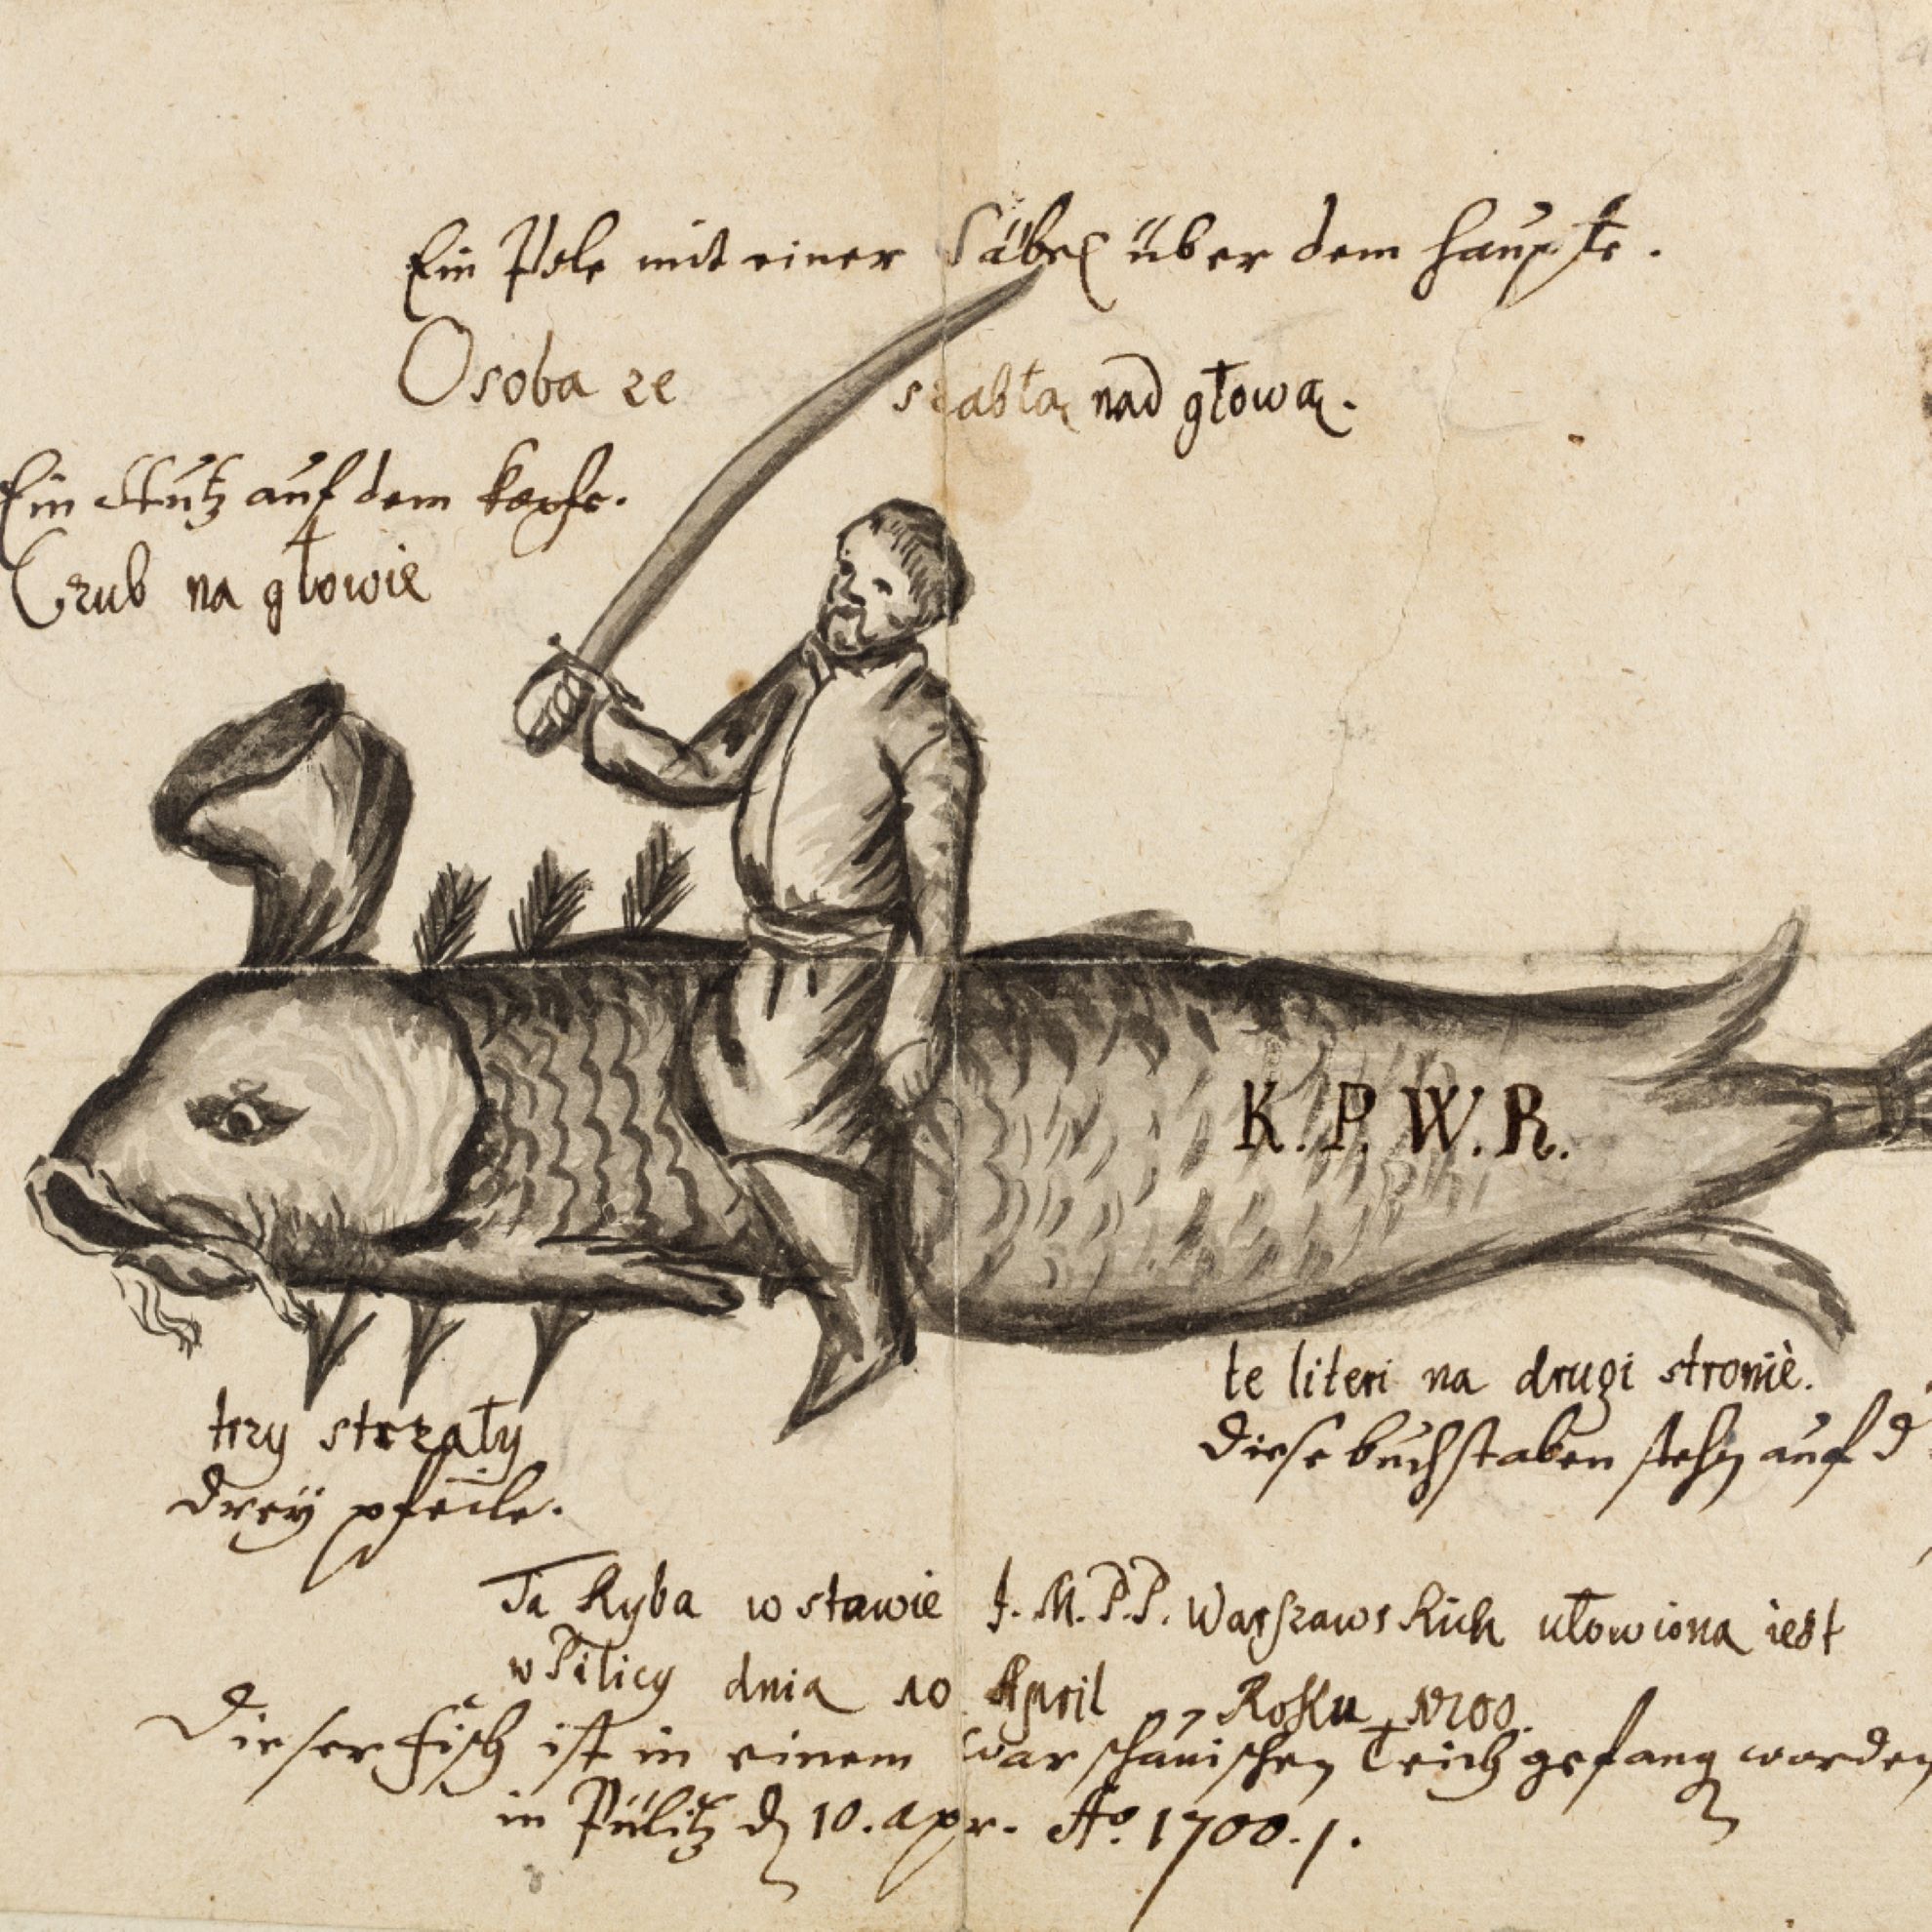 Ein Pole mit einer Säbel über dem Haupte.
Osoba ze szablą nad głową.
Ein Stutz auf dem Kopfe.
Czub na głowie
K. P. W. R.
te literi na drugi stronie.
Diese buchstaben stehen auf d
trzy strzały
dreÿ pfeile.
Ta Ryba w stawie J. M. P. P. Warszawskich ułowiona iest
w Pilicy dnia 10 April Roku 1700.
Dieser Fisch ist in einem warschauischen Teich gefangen worden
in Pülitz d. 10. Apr. Ao. 1700.